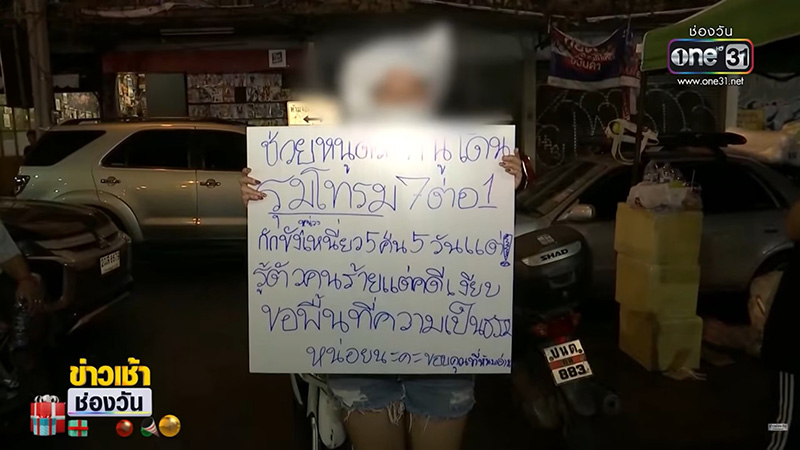 ช่องวัน
one31
www.one31.net
ช่วยหนู
รุมโทรม 7 ต่อ 1
กักขังหน่วงเหนี่ยว 5 คืน 5 วัน แต่
รู้ตัวคนร้ายแต่คดีเงียบ
ขอพื้นที่ความเป็นธรรม
หน่อยนะคะ ขอบคุณที่
SHAD
883
ข่าวเช้า
ช่องวัน